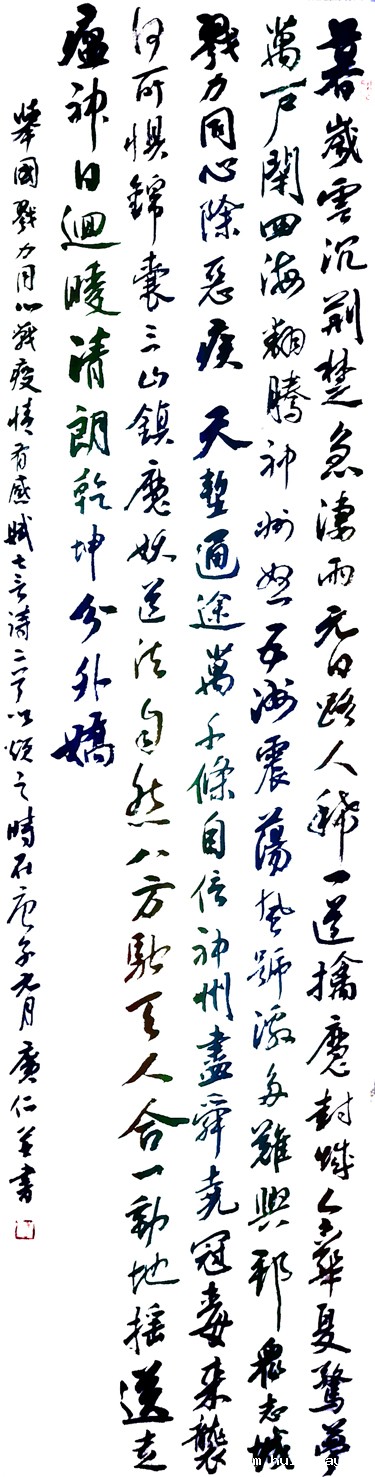 暮歲雲沉荊楚急淒雨元日路人稀一道擒魔封城令華夏驚夢
萬戶閉四海翻騰神州怒五洲震蕩風號激多難興邦眾志城
戮力同心除惡疾 天塹通途萬千條自信神州盡舜堯冠毒來襲
何所懼錦囊三山鎮魔妖道法自然八方馳天人合一動地搖送走
瘟神日迴暖清朗乾坤分外嬌
舉國戮力同心戰疫情有感賦七言詩二首以頌之時在庚子元月廣仁並書